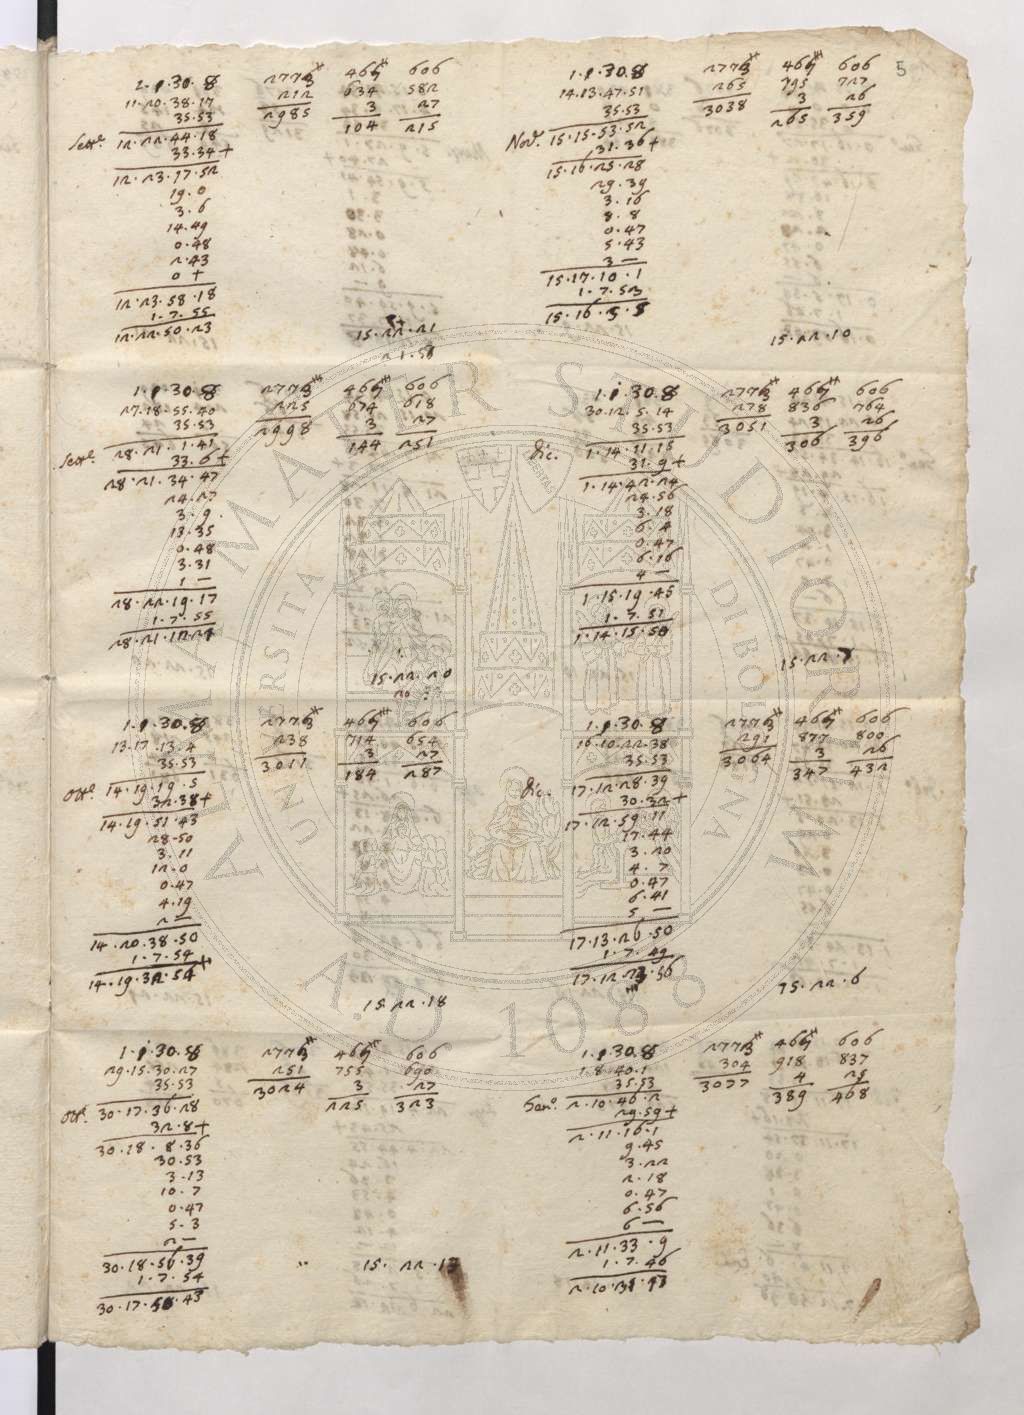 5
1.1.30.8 2773 467 606
11.20.38.17 212 634 582
35.53 2985 3 27
Sett.e 12.22.44.18 104 215
33.34+
12.23.17.52
19.0
3.6
14.49
0.48
2.43
0+
12.23.58.18
1.7.55
12.22.50.23
15.22.21
21.58
1.1.30.8 2773 467 606
27.18.55.40 225 674 618
35.53 2998 3 27
Sett.e 28.21.1.41 144 251
33.6+
28.21.34.47
24.27
3.9
13.35
0.48
3.31
1—
28.22.19.17
1.7.55
28.21.12.27
15.22.20
1.1.30.8 2773 467 606
13.17.13.4 238 714 654
35.53 3011 3 27
Ott.e 14.19.19.5 184 287
32.38+
14.19.51.43
28.50
3.11
12.0
0.47
4.19
2—
14.20.38.50
1.7.54
14.19.32.54+
15.22.18
1.1.30.8 2773 467 606
29.15.30.27 251 755 690
35.53 3024 3 27
Ott.e 30.17.36.28 225 323
32.8+
30.18.8.36
30.53
3.13
10.7
0.47
5.3
2—
30.18.56.39
1.7.54
30.17.50.43
15.22.13
1.1.30.8 2773 467 606
14.13.47.51 265 795 727
35.53 3038 3 26
Nov.e 15.15.53.52 265 359
31.36+
15.16.25.28
29.39
3.16
8.8
0.47
5.43
3—
15.17.10.1
1.7.53
15.16.3.8
15.22.10
1.1.30.8 2773 467 606
30.12.5.14 278 836 764
35.53 3051 3 26
Dic. 1.14.11.15 306 396
31.9+
1.14.42.24
29.56
3.18
6.4
0.47
6.16
4—
1.15.19.45
1.7.51
1.14.15.50
15.22.7
1.1.30.8 2773 467 606
16.10.22.38 291 877 800
35.53 3064 3 26
Dic. 17.12.28.39 347 432
30.32+
17.12.59.11
17.44
3.20
4.7
0.47
6.41
5—
17.13.26.50
1.7.49
17.12.23.56
15.22.6
1.1.30.8 2773 467 606
1.8.40.1 304 918 837
35.53 3077 4 25
Gen.o 2.10.46.2 389 468
29.59+
2.11.16.1
9.45
3.22
2.18
0.47
6.56
6—
2.11.33.9
1.7.46
2.10.31.43
ALMA MATER STUDIORUM
UNIVERSITA DI BOLOGNA
A.D. 1088